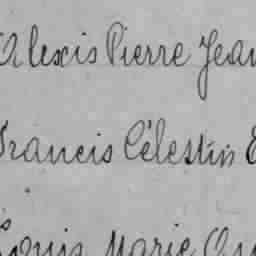 Alexis Pierre Jean
Francis Célestin
Louis Marie